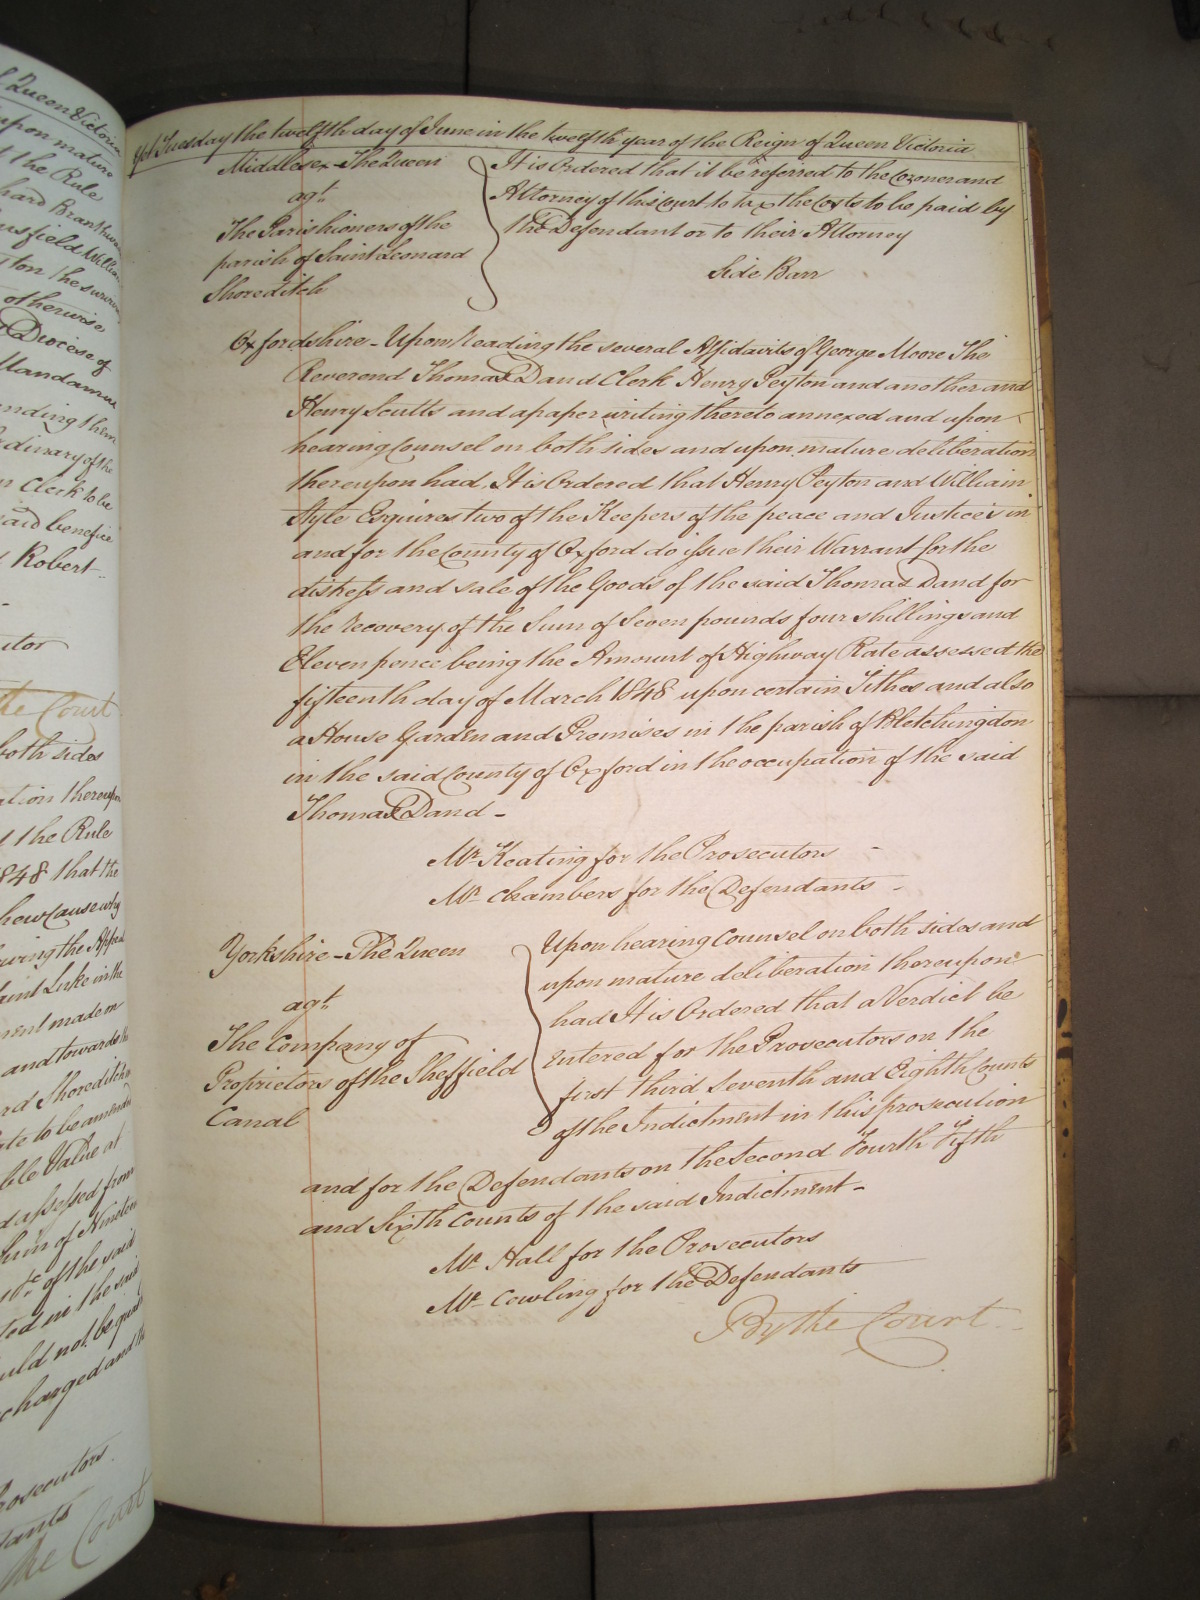 Queen Victoria
upon mature
the Rule
otherwise
Diocese of
Mandamus
Clerk to be
said benefice
Robert
the Court
both sides
the Rule
1848 that the
and towards the
of the said
in the said
changed and
Prosecutors
the Court
Yet Tuesday the twelfth day of June in the twelfth year of the Reign of Queen Victoria
Middlesex - The Queen
agt.
The Parishioners of the
parish of Saint Leonard
Shoreditch
It is Ordered that it be referred to the Coroner and
Attorney of this Court to tax the Costs to be paid by
the Defendant or to their Attorney
Side Barr
Oxfordshire - Upon Reading the several Affidavits of George Moore The
Reverend Thomas Dand Clerk Henry Peyton and another and
Henry Scutts and a paper writing thereto annexed and upon
hearing Counsel on both sides and upon mature deliberation
thereupon had. It is Ordered that Henry Peyton and William
Style Esquires two of the Keepers of the peace and Justices in
and for the County of Oxford do issue their Warrant for the
distress and sale of the Goods of the said Thomas Dand for
the recovery of the Sum of Seven pounds four shillings and
Eleven pence being the Amount of Highway Rate assessed the
fifteenth day of March 1848 upon certain Tithes and also
a House Garden and Premises in the parish of Bletchingdon
in the said County of Oxford in the occupation of the said
Thomas Dand -
Mr. Keating for the Prosecutors
Mr. Chambers for the Defendants -
Yorkshire - The Queen
agt.
The Company of
Proprietors of the Sheffield
Canal
Upon hearing Counsel on both sides and
upon mature deliberation thereupon
had It is Ordered that a Verdict be
entered for the Prosecutors on the
first third Seventh and Eighth Counts
of the Indictment in this prosecution
and for the Defendants on the Second Fourth Fifth
and Sixth Counts of the said Indictment -
Mr. Hall for the Prosecutors
Mr. Cowling for the Defendants
By the Court